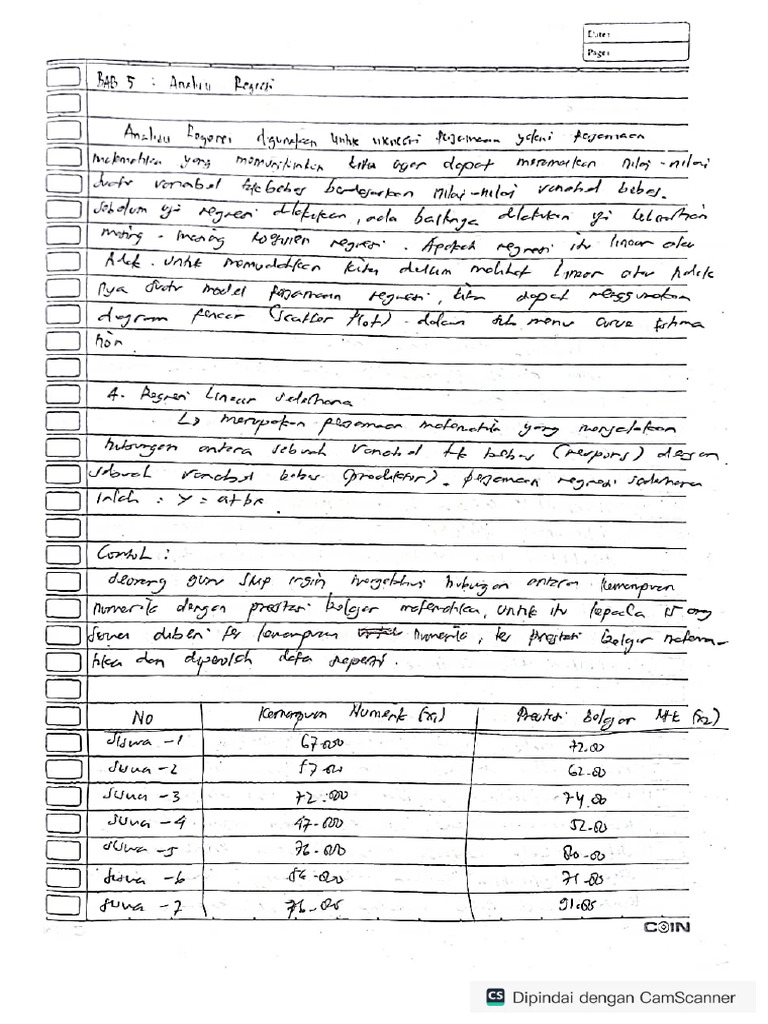 Date:
Page:
BAB 5 : Analisis Regresi
Analisis Regresi digunakan untuk mencari persamaan yakni persamaan
matematika yang memungkinkan kita agar dapat meramalkan nilai-nilai
suatu variabel tak bebas berdasarkan nilai-nilai variabel bebas.
Sebelum uji regresi dilakukan, ada baiknya dilakukan uji
masing - masing regresi. Apakah regresi itu linear atau
tidak. untuk memudahkan kita dalam melihat linear atau tidak
nya suatu model persamaan regresi, kita dapat menggunakan
diagram pencar (Scatter Plot). dalam sub menu curve Estima
tion.
A. Regresi Linear sederhana
↳ merupakan persamaan matematika yang menjelaskan
hubungan antara sebuah variabel tak bebas (respons) dengan
sebuah variabel bebas (prediktor). persamaan regresi sederhana
ialah : Y = a+bx.
Contoh :
seorang guru SMP ingin mengetahui hubungan antara kemampuan
numerik dengan prestasi belajar matematika, untuk itu kepada 15 org
siswa diberi tes kemampuan numerik, tes prestasi belajar matema-
tika dan diperoleh data seperti.
No Kemampuan Numerik (x1) Prestasi Belajar Mtk (x2)
Siswa -1 67.000 72.00
Siswa -2 57.00 62.00
Siswa -3 72.000 74.00
Siswa -4 47.000 52.00
Siswa -5 76.000 80.00
Siswa -6 000 71.00
Siswa -7 76.00 91.00
COIN
CS Dipindai dengan CamScanner